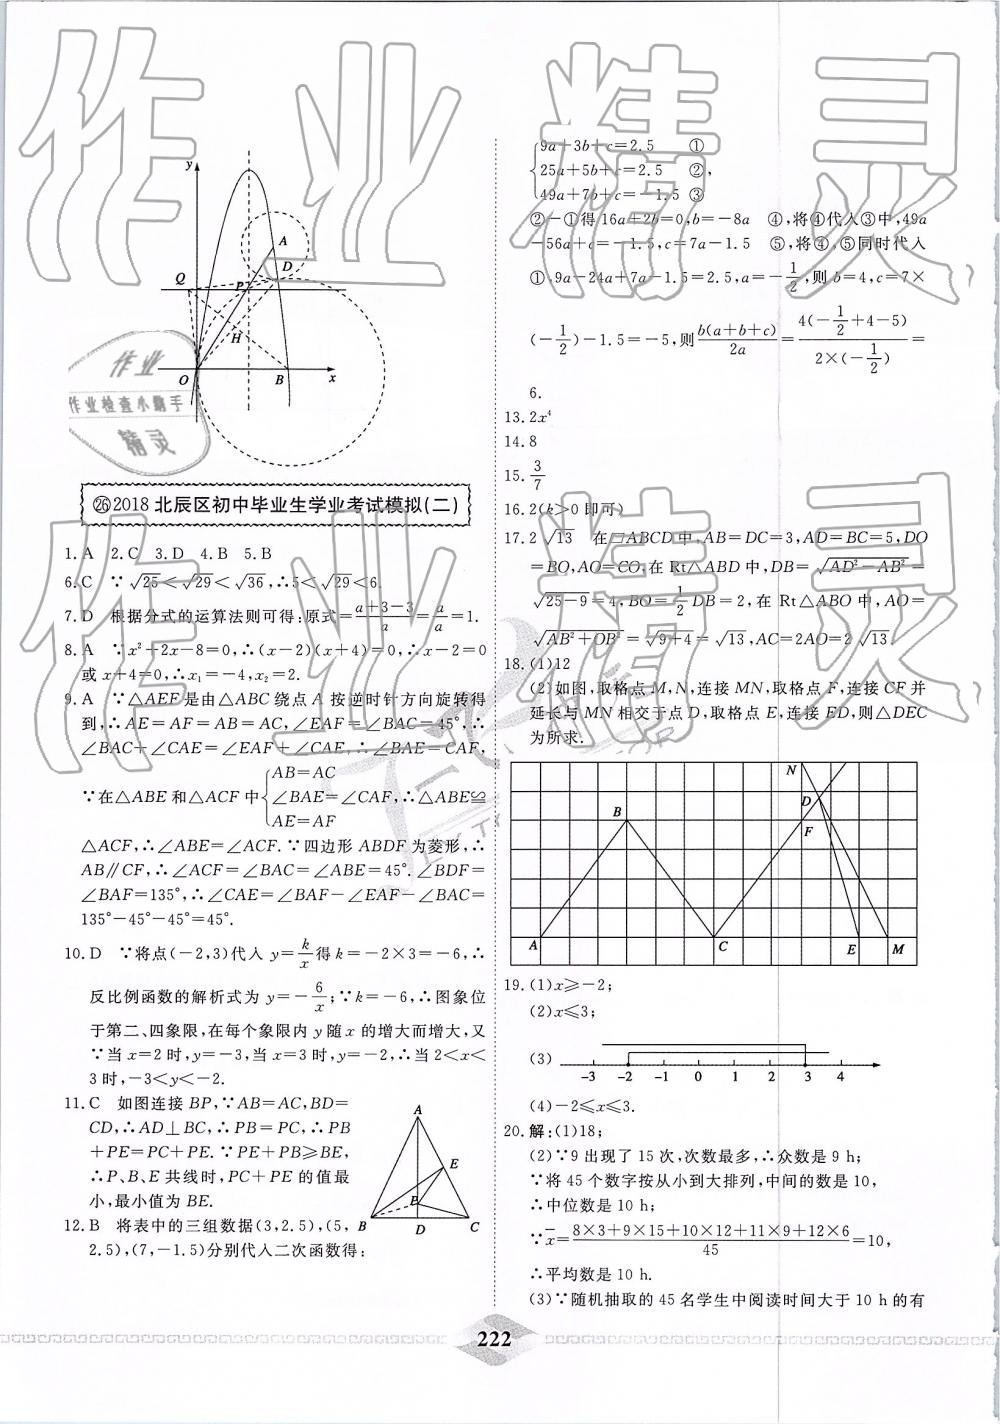 作业精灵
y
A
Q
D
P
H
O
B
x
作业
作业检查小助手
精灵
㉖2018 北辰区初中毕业生学业考试模拟(二)
1. A　2. C　3. D　4. B　5. B
6. C　∵√25<√29<√36,∴5<√29<6.
7. D　根据分式的运算法则可得:原式=(a+3-3)/a=a/a=1.
8. A　∵x²+2x-8=0,∴(x-2)(x+4)=0,∴x-2=0
或x+4=0,∴x₁=-4,x₂=2.
9. A　∵△AEF是由△ABC绕点A按逆时针方向旋转得
到,∴AE=AF=AB=AC,∠EAF=∠BAC=45°,∴
∠BAC+∠CAE=∠EAF+∠CAE,∴∠BAE=CAF,
∵在△ABE和△ACF中{AB=AC
∠BAE=∠CAF,∴△ABE≌
AE=AF
△ACF,∴∠ABE=∠ACF.∵四边形ABDF为菱形,∴
AB∥CF,∴∠ACF=∠BAC=∠ABE=45°.∠BDF=
∠BAF=135°,∴∠CAE=∠BAF-∠EAF-∠BAC=
135°-45°-45°=45°.
10. D　∵将点(-2,3)代入y=k/x得k=-2×3=-6,∴
反比例函数的解析式为y=-6/x;∵k=-6,∴图象位
于第二、四象限,在每个象限内y随x的增大而增大,又
∵当x=2时,y=-3,当x=3时,y=-2,∴当2<x<
3时,-3<y<-2.
11. C　如图连接BP,∵AB=AC,BD=
CD,∴AD⊥BC,∴PB=PC,∴PB
+PE=PC+PE.∵PE+PB≥BE,
∴P、B、E共线时,PC+PE的值最
小,最小值为BE.
A
E
P
B
D
C
12. B　将表中的三组数据(3,2.5),(5,
2.5),(7,-1.5)分别代入二次函数得:
{9a+3b+c=2.5　①
25a+5b+c=2.5　②,
49a+7b+c=-1.5 ③
②-①得16a+2b=0,b=-8a　④,将④代入③中,49a
-56a+c=-1.5,c=7a-1.5　⑤,将④、⑤同时代入
①,9a-24a+7a-1.5=2.5,a=-1/2,则b=4,c=7×
(-1/2)-1.5=-5,则b(a+b+c)/2a=4(-1/2+4-5)/2×(-1/2)=
6.
13. 2x⁴
14. 8
15. 3/7
16. 2(k>0即可)
17. 2√13　在□ABCD中,AB=DC=3,AD=BC=5,DO
=BO,AO=CO,在Rt△ABD中,DB=√(AD²-AB²)=
√(25-9)=4,BO=1/2DB=2,在Rt△ABO中,AO=
√(AB²+OB²)=√(9+4)=√13,AC=2AO=2√13.
18. (1)12
(2)如图,取格点M,N,连接MN,取格点F,连接CF并
延长与MN相交于点D,取格点E,连接ED,则△DEC
为所求.
N
D
B
F
A
C
E
M
19. (1)x≥-2;
(2)x≤3;
(3)
-3 -2 -1 0 1 2 3 4
(4)-2≤x≤3.
20. 解:(1)18;
(2)∵9出现了15次,次数最多,∴众数是9 h;
∵将45个数字按从小到大排列,中间的数是10,
∴中位数是10 h;
∵x̄=(8×3+9×15+10×12+11×9+12×6)/45=10,
∴平均数是10 h.
(3)∵随机抽取的45名学生中阅读时间大于10 h的有
222